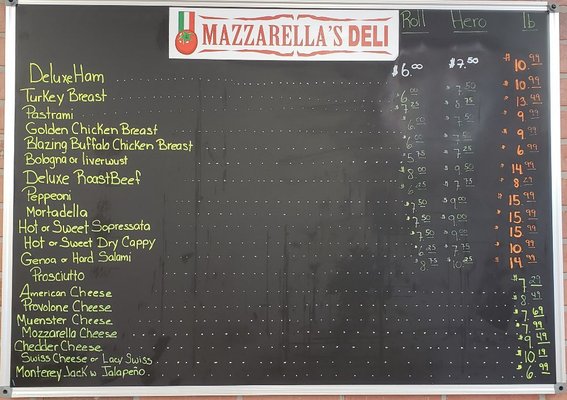 MAZZARELLA'S DELI
Roll Hero lb
Deluxe Ham $6.00 $7.50 $10.99
Turkey Breast $6.00 $7.50 $10.99
Pastrami $7.25 $8.75 $13.99
Golden Chicken Breast $6.00 $7.50 $9.99
Blazing Buffalo Chicken Breast $6.00 $7.50 $9.99
Bologna or liverwust $5.75 $7.25 $6.99
Deluxe Roast Beef $8.00 $9.50 $14.99
Peppeoni $7.75 $8.29
Mortadella $7.50 $9.00 $15.99
Hot or Sweet Sopressata $7.50 $9.00 $15.99
Hot or Sweet Dry Cappy $7.50 $9.00 $15.99
Genoa or Hard Salami $6.25 $7.75 $10.99
Prosciutto $8.75 $10.25 $14.99
American Cheese $7.29
Provolone Cheese $8.49
Muenster Cheese $7.69
Mozzarella Cheese $7.99
Chedder Cheese $9.49
Swiss Cheese or Lacy Swiss $10.19
Monterey Jack w Jalapeño $6.99